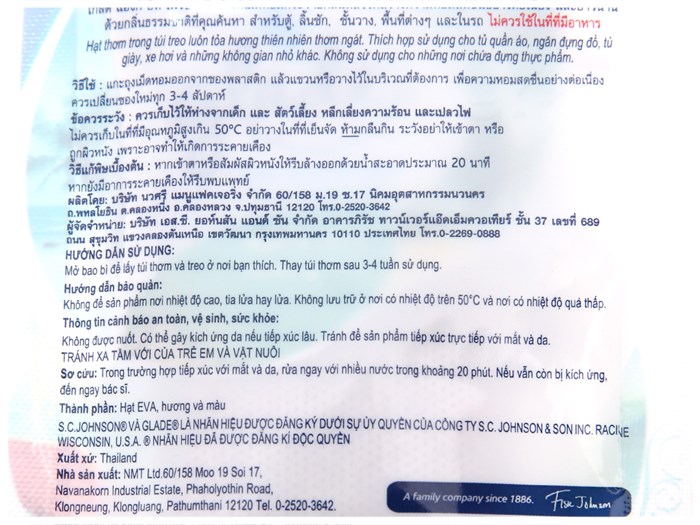 ด้วยกลิ่นธรรมชาติที่คุณค้นหา สำหรับตู้, ลิ้นชัก, ชั้นวาง, พื้นที่ต่างๆ และในรถ ไม่ควรใช้ในที่ที่มีอาหาร
Hạt thơm trong túi treo luôn tỏa hương thiên nhiên thơm ngát. Thích hợp sử dụng cho tủ quần áo, ngăn đựng đồ, tủ
giày, xe hơi và những không gian nhỏ khác. Không sử dụng cho những nơi chứa đựng thực phẩm.
วิธีใช้ : แกะถุงเม็ดหอมออกจากซองพลาสติก แล้วแขวนหรือวางไว้ในบริเวณที่ต้องการ เพื่อความหอมสดชื่นอย่างต่อเนื่อง
ควรเปลี่ยนซองใหม่ทุก 3-4 สัปดาห์
ข้อควรระวัง : ควรเก็บไว้ให้ห่างจากเด็ก และ สัตว์เลี้ยง หลีกเลี่ยงความร้อน และเปลวไฟ
ไม่ควรเก็บในที่ที่มีอุณหภูมิสูงเกิน 50°C อย่าวางในที่ที่เย็นจัด ห้ามกลืนกิน ระวังอย่าให้เข้าตา หรือ
ถูกผิวหนัง เพราะอาจทำให้เกิดการระคายเคือง
วิธีแก้พิษเบื้องต้น : หากเข้าตาหรือสัมผัสผิวหนังให้รีบล้างออกด้วยน้ำสะอาดประมาณ 20 นาที
หากยังมีอาการระคายเคืองให้รีบพบแพทย์
ผลิตโดย: บริษัท นวศรี แมนูแฟคเจอริ่ง จำกัด 60/158 ม.19 ซ.17 นิคมอุตสาหกรรมนวนคร
ถ.พหลโยธิน ต.คลองหนึ่ง อ.คลองหลวง จ.ปทุมธานี 12120 โทร.0-2520-3642
ผู้จัดจำหน่าย: บริษัท เอส.ซี. ยอห์นสัน แอนด์ ซัน จำกัด อาคารภิรัช ทาวน์เวอร์แอ๊ดเอ็มควอเทียร์ ชั้น 37 เลขที่ 689
ถนน สุขุมวิท แขวงคลองตันเหนือ เขตวัฒนา กรุงเทพมหานคร 10110 ประเทศไทย โทร.0-2269-0888
HƯỚNG DẪN SỬ DỤNG:
Mở bao bì để lấy túi thơm và treo ở nơi bạn thích. Thay túi thơm sau 3-4 tuần sử dụng.
Hướng dẫn bảo quản:
Không để sản phẩm nơi nhiệt độ cao, tia lửa hay lửa. Không lưu trữ ở nơi có nhiệt độ trên 50°C và nơi có nhiệt độ quá thấp.
Thông tin cảnh báo an toàn, vệ sinh, sức khỏe:
Không được nuốt. Có thể gây kích ứng da nếu tiếp xúc lâu. Tránh để sản phẩm tiếp xúc trực tiếp với mắt và da.
TRÁNH XA TẦM VỚI CỦA TRẺ EM VÀ VẬT NUÔI
Sơ cứu: Trong trường hợp tiếp xúc với mắt và da, rửa ngay với nhiều nước trong khoảng 20 phút. Nếu vẫn còn bị kích ứng,
đến ngay bác sĩ.
Thành phần: Hạt EVA, hương và màu
S.C.JOHNSON® VÀ GLADE® LÀ NHÃN HIỆU ĐƯỢC ĐĂNG KÝ DƯỚI SỰ ỦY QUYỀN CỦA CÔNG TY S.C. JOHNSON & SON INC. RACINE
WISCONSIN, U.S.A. ® NHÃN HIỆU ĐÃ ĐƯỢC ĐĂNG KÍ ĐỘC QUYỀN
Xuất xứ: Thailand
Nhà sản xuất: NMT Ltd.60/158 Moo 19 Soi 17,
Navanakorn Industrial Estate, Phaholyothin Road,
Klongneung, Klongluang, Pathumthani 12120 Tel. 0-2520-3642.
A family company since 1886. Fisk Johnson